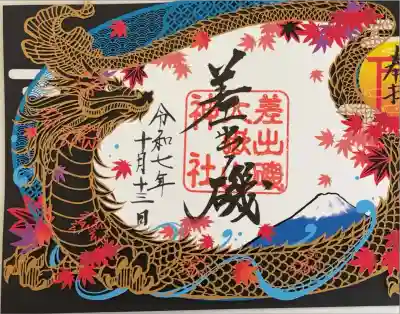 奉拝
差出磯
差出磯
神社
令和七年
十月十三日